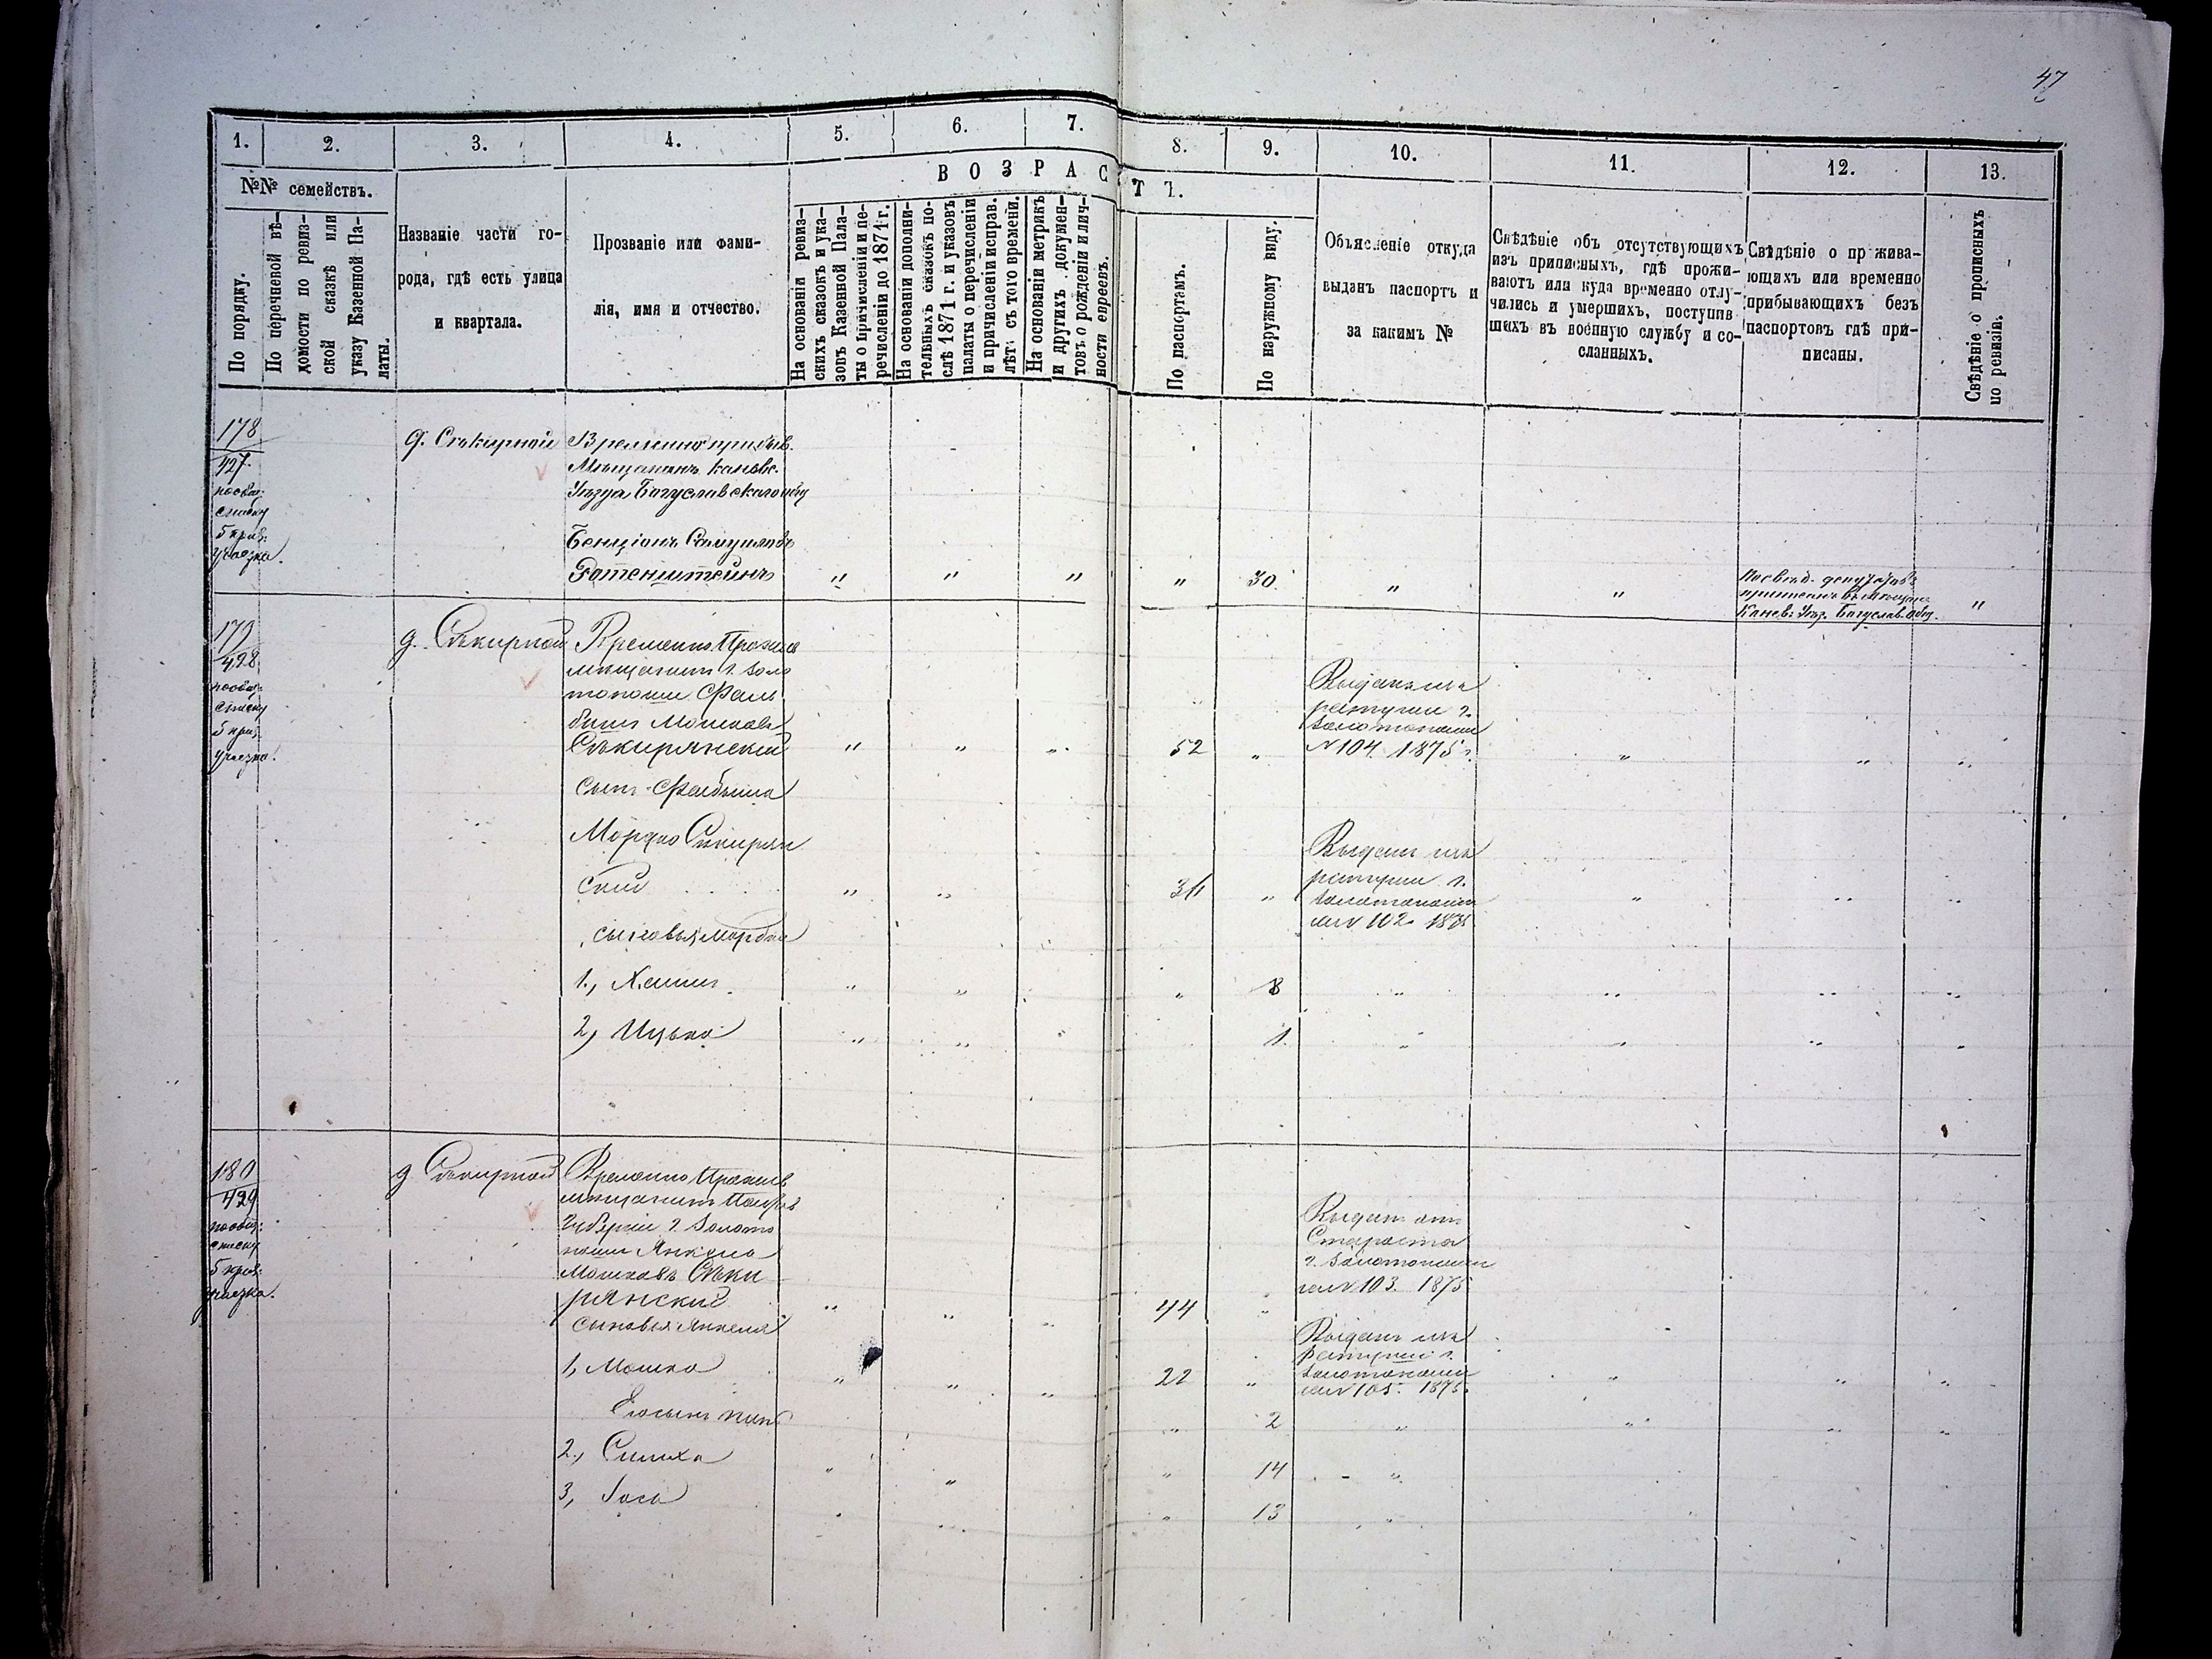 47
1. 2. 3. 4. 5. 6. 7. 8. 9. 10. 11. 12. 13.
№№ семействъ.
По порядку.
По перечневой вѣ-
домости по ревиз-
ской сказкѣ или
указу Казенной Па-
латы.
Названіе части го-
рода, гдѣ есть улица
и квартала.
Прозваніе или фами-
лія, имя и отчество.
ВОЗРАСТЪ.
На основаніи ревиз-
скихъ сказокъ и ука-
зовъ Казенной Пала-
ты о причисленіи и пе-
речисленіи до 1871 г.
На основаніи дополни-
тельныхъ сказокъ по-
слѣ 1871 г. и указовъ
палаты о перечисленіи
и причисленіи исправ.
лѣтъ съ того времени.
На основаніи метрикъ
и другихъ докумен-
товъ о рожденіи и лич-
ности евреевъ.
По паспортамъ.
По наружному виду.
Объясненіе откуда
выданъ паспортъ и
за какимъ №
Свѣдѣніе объ отсутствующихъ
изъ приписныхъ, гдѣ прожи-
ваютъ или куда временно отлу-
чились и умершихъ, поступив
шихъ въ военную службу и со-
сланныхъ.
Свѣдѣніе о пр жива-
ющихъ или временно
прибывающихъ безъ
паспортовъ гдѣ при-
писаны.
Свѣдѣніе о прописныхъ
по ревизіи.
178
427
списку
5 приз:
участка.
д. Сѣкирной
Временно прибыв.
Мѣщанинъ Каневс.
Уѣзда Богуславскаго общ
Бенціонъ Самуиловъ
Ротенштейнъ " " " " 30 " " "
депутатовъ
приписанъ въ мѣщане
Канев: Уѣз. Богуслав. Общ.
179
428
списку
5 приз.
участка.
д. Сѣкирной
Временно Прожив
мѣщанинъ г. Золо
тоноши Фаль
бишъ Мошковъ
Сѣкирянскій " " " 52 " " " "
Выданъ изъ
ратуши г.
Золотоноши
№ 104. 1875 г.
Сынъ Фалбиша
Мордко Сѣкирян
скій " " " " " "
Выданъ изъ
ратуши г.
Золотоноши
за № 102. 1875
сыновья Мордки
1., " " " 8 " " " "
2, Ицько " " 1. " " " "
180
429
списку
5 приз:
участка.
д Сѣкирной
Временно Прожив
мѣщанинъ Полтав
Губерніи г. Золото
ноши Янкель
Мошковъ Сѣки
рянскій " " " 44 "
Выданъ отъ
Старосты
г. Золотоноши
за № 103. 1875
сыновья Янкеля
1, Мошко " " " 22 " " " "
Выданъ изъ
Ратуши г.
Золотоноши
за № 105. 1875.
Его сынъ " 2 " " " "
2., " " " 14 "
3, " 13 "